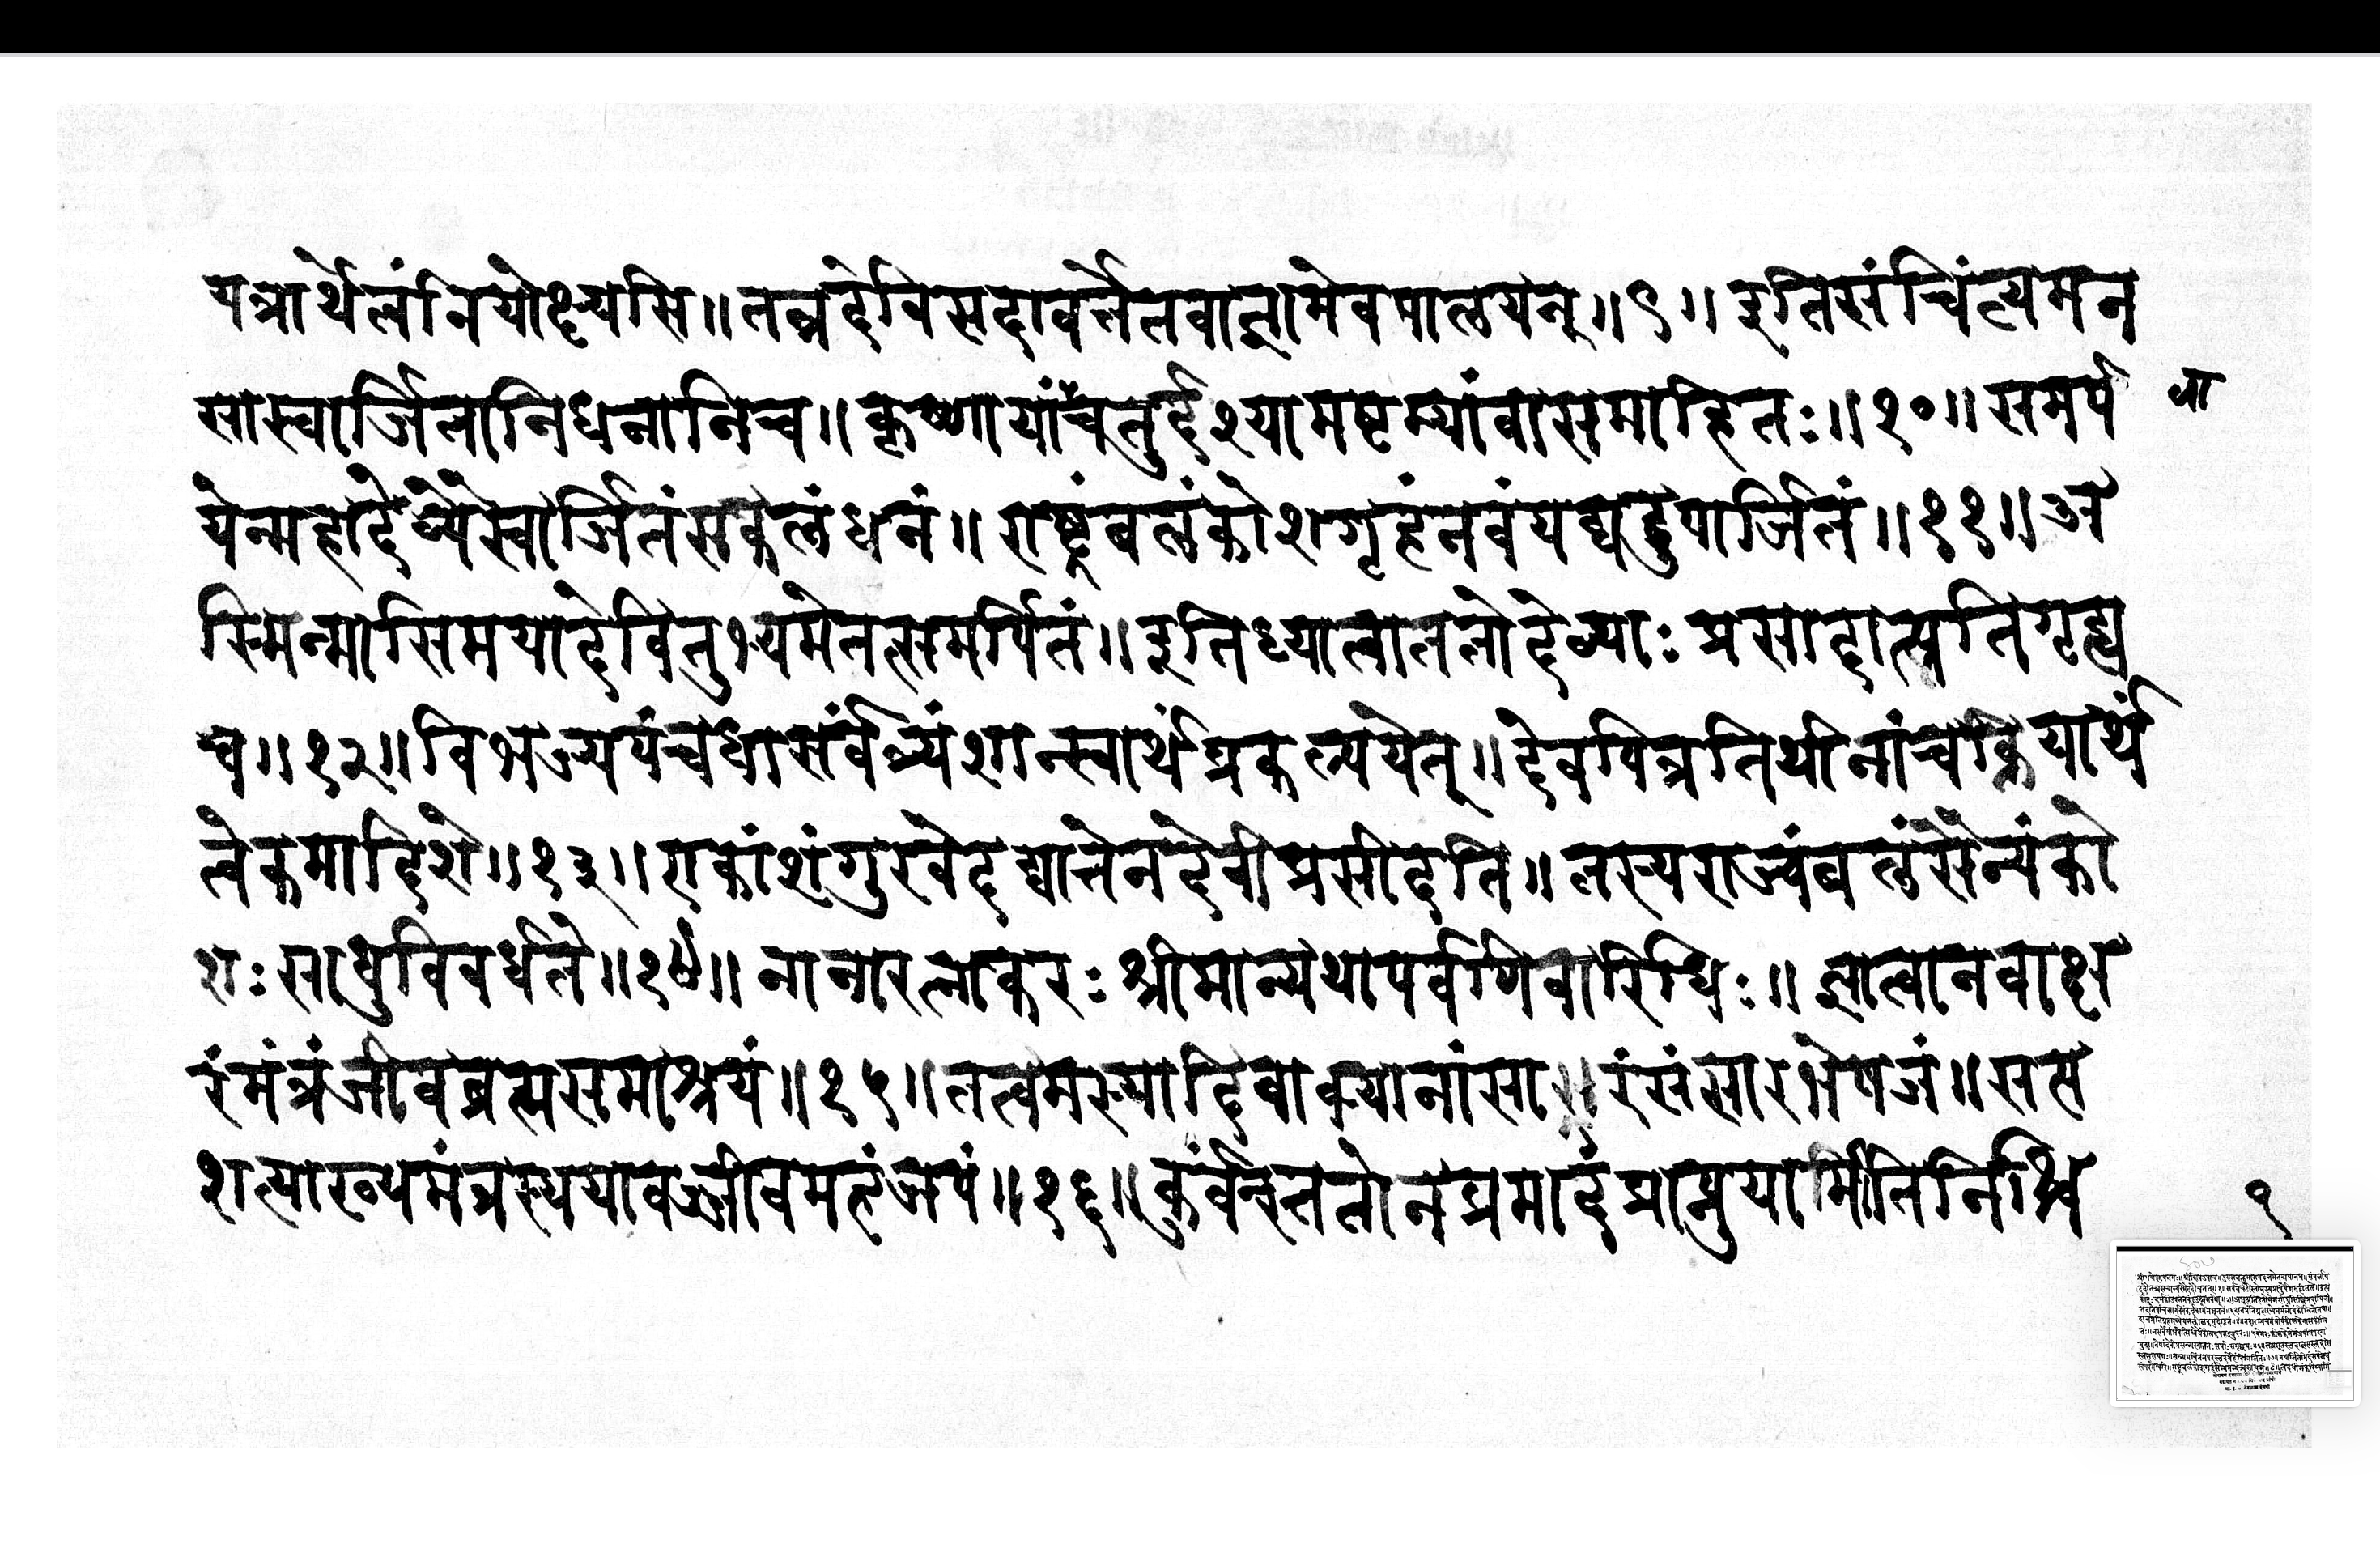 यत्रार्थेत्वंनियोक्ष्यसि॥तत्रदेविसदावर्त्तेतवाज्ञामेवपालयन्॥९॥इतिसंचिंत्यमन
सास्वार्जितानिधनानिच॥कृष्णायांचतुर्दश्यामष्टम्यांवासमाहितः॥१०॥समर्प
येन्महादेव्यैस्वार्जितंसकलंधनं॥राष्ट्रंबलंकोशगृहंनवंयद्यदुपार्जितं॥११॥अ
स्मिन्मासिमयादेवितुभ्यमेतत्समर्पितं॥इतिध्यात्वाततोदेव्याः प्रसादात्प्रतिगृह्य
च॥१२॥विभज्यपंचधासर्वंत्र्यंशान्स्वार्थंप्रकल्पयेत्॥देवपित्रतिथीनांचक्रियार्थं
त्वेकमादिशे॥१३॥एकांशंगुरवेदद्यात्तेनदेवीप्रसीदति॥तस्यराज्यंबलंसैन्यंको
शः साधुविवर्धते॥१४॥नानारत्नाकरः श्रीमान्यथापर्वणिवारिधिः॥ज्ञात्वानवाक्ष
रंमंत्रंजीवब्रह्मसमाश्रयं॥१५॥तत्वमस्यादिवाक्यानांसा॥रंसंसारभेषजं॥सप्त
शत्याख्यमंत्रस्ययावज्जीवमहंजपं॥१६॥कुर्वन्स्ततोनप्रमादंप्राप्नुयामितिनिश्चि
१